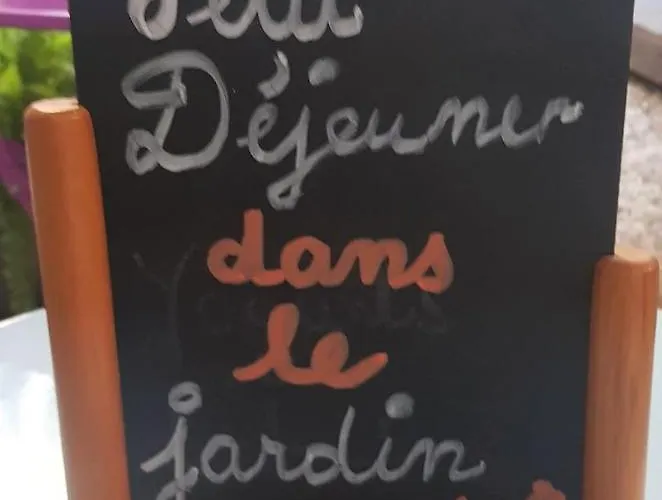 Petit
Déjeuner
dans
le
jardin